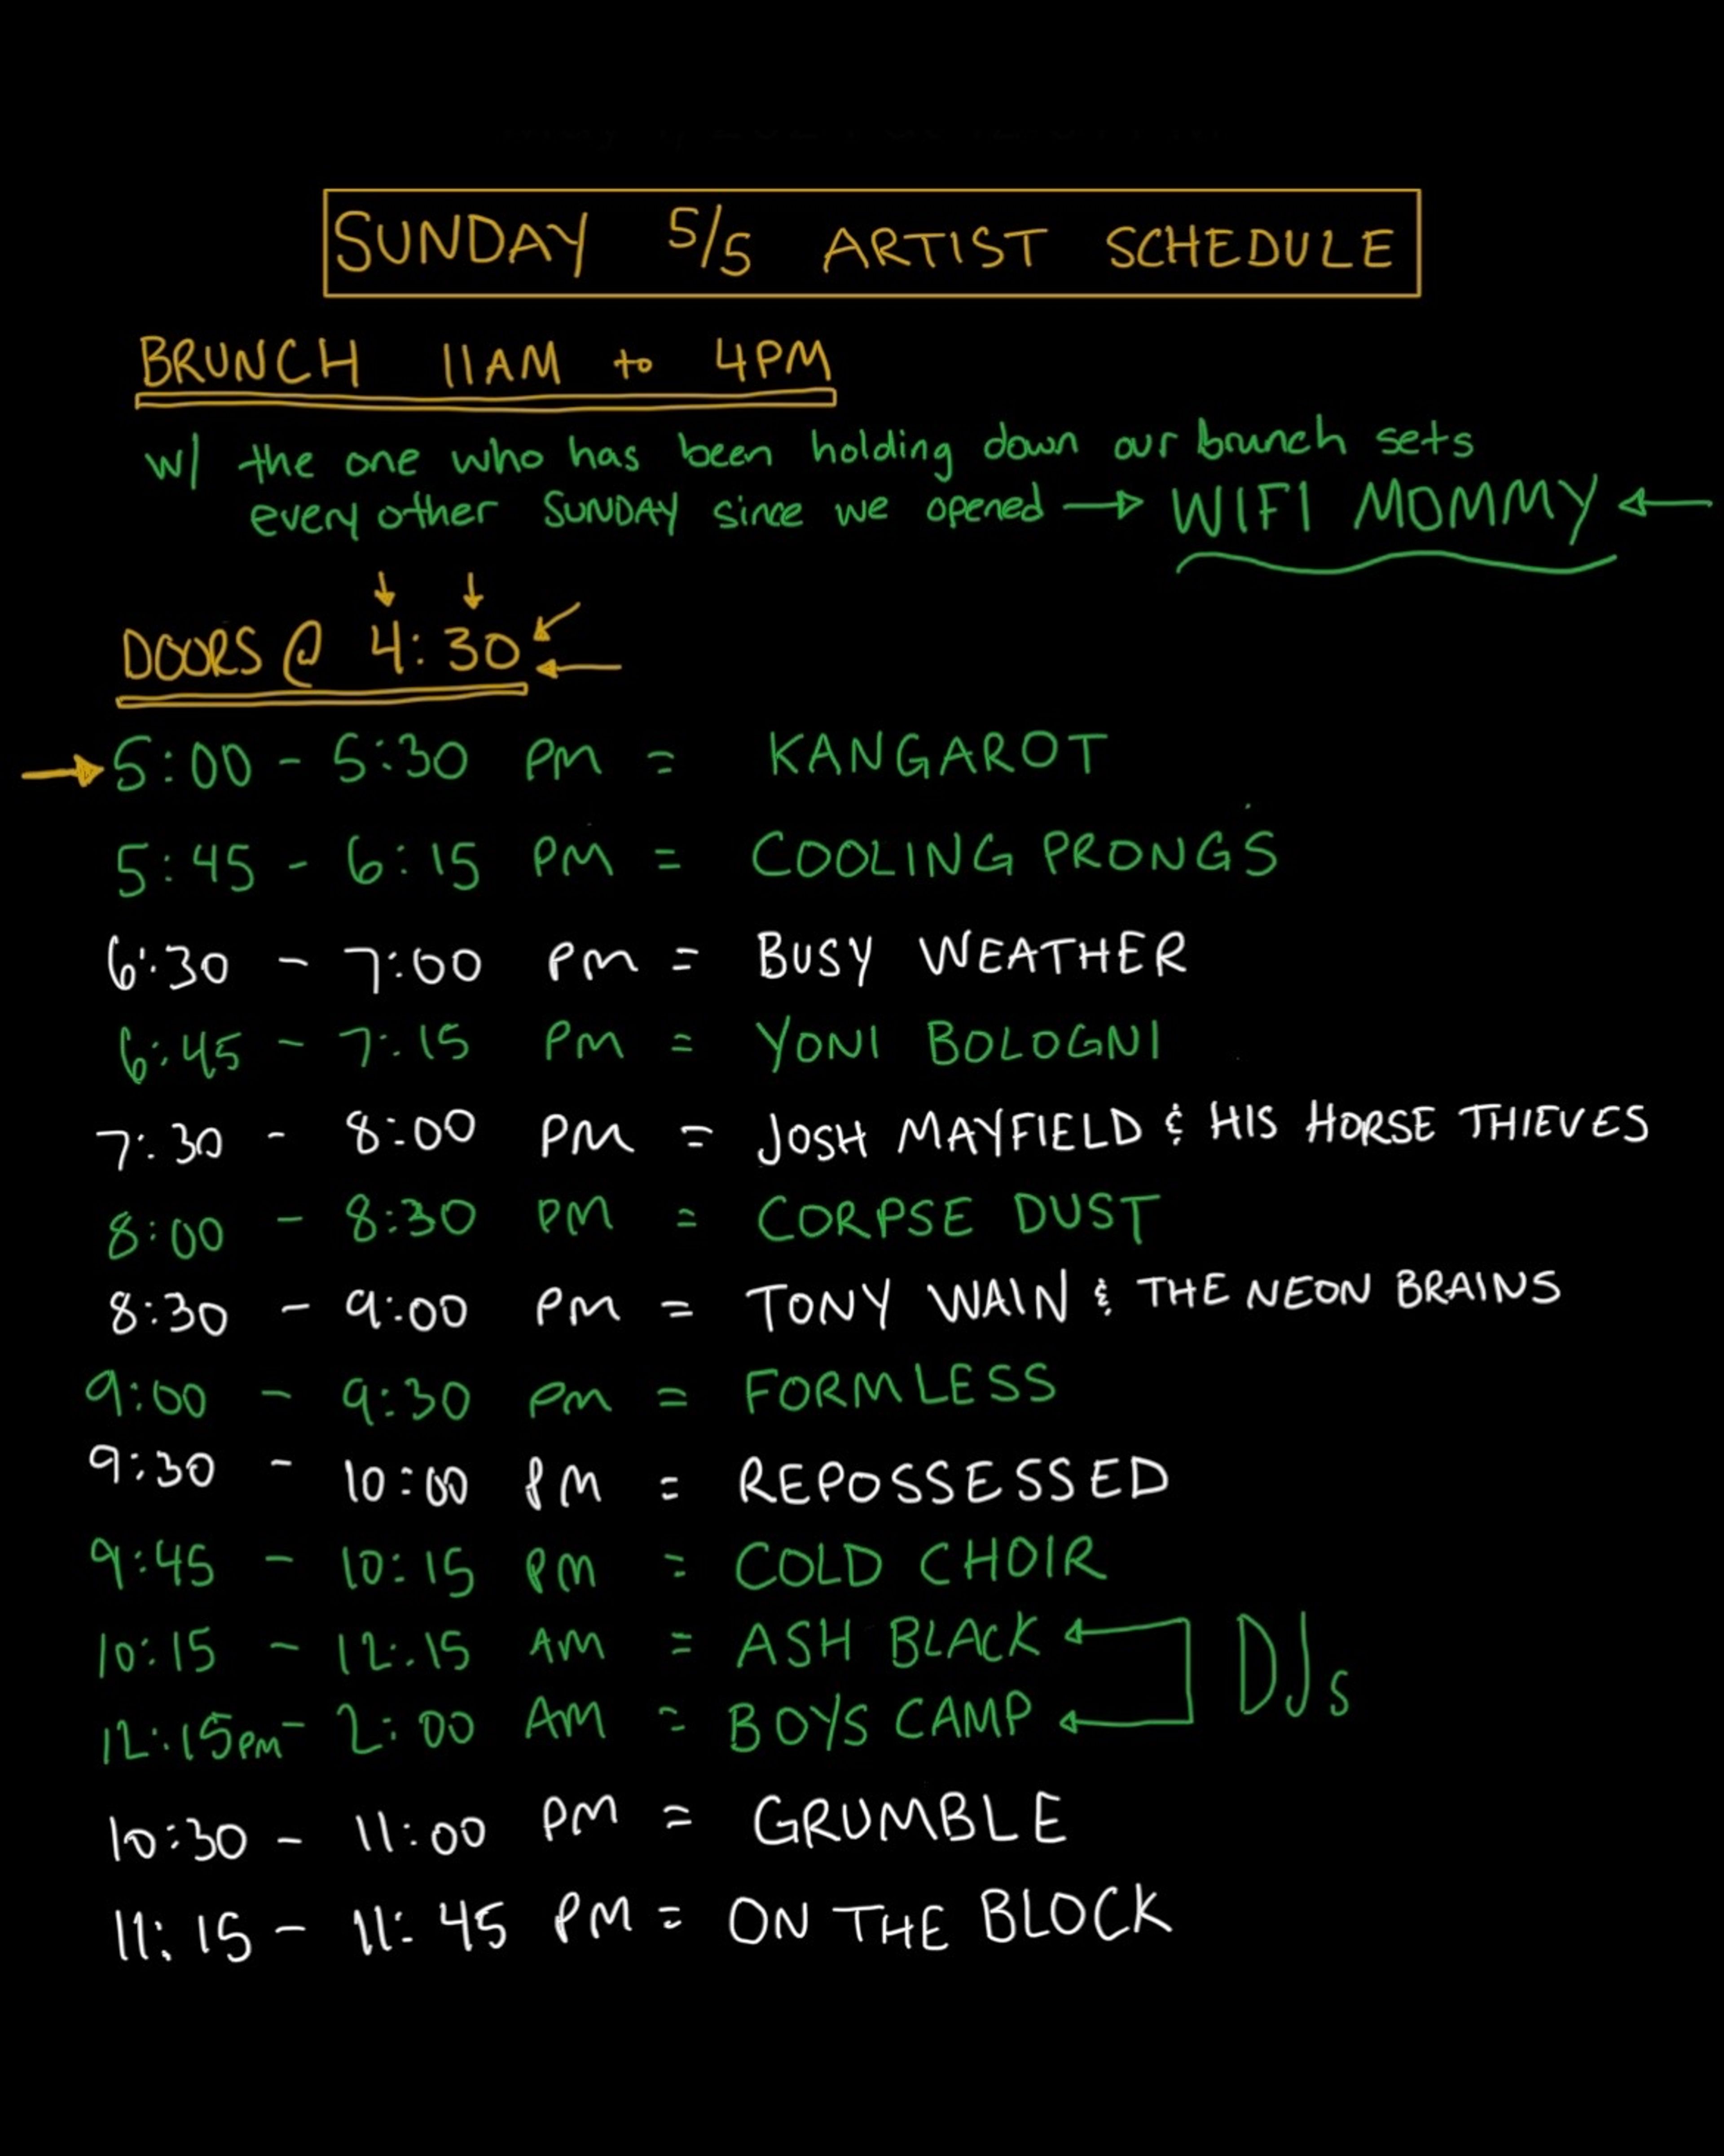 SUNDAY 5/5 ARTIST SCHEDULE
BRUNCH 11AM to 4PM
w/ the one who has been holding down our brunch sets
every other SUNDAY since we opened → WIFI MOMMY ←
DOORS @ 4:30
5:00 - 5:30 PM = KANGAROT
5:45 - 6:15 PM = COOLING PRONGS
6:30 - 7:00 PM = BUSY WEATHER
6:45 - 7:15 PM = YONI BOLOGNI
7:30 - 8:00 PM = JOSH MAYFIELD & HIS HORSE THIEVES
8:00 - 8:30 PM = CORPSE DUST
8:30 - 9:00 PM = TONY WAIN & THE NEON BRAINS
9:00 - 9:30 PM = FORMLESS
9:30 - 10:00 PM = REPOSSESSED
9:45 - 10:15 PM = COLD CHOIR
10:15 - 12:15 AM = ASH BLACK
DJs
12:15PM - 2:00 AM = BOYS CAMP
10:30 - 11:00 PM = GRUMBLE
11:15 - 11:45 PM = ON THE BLOCK